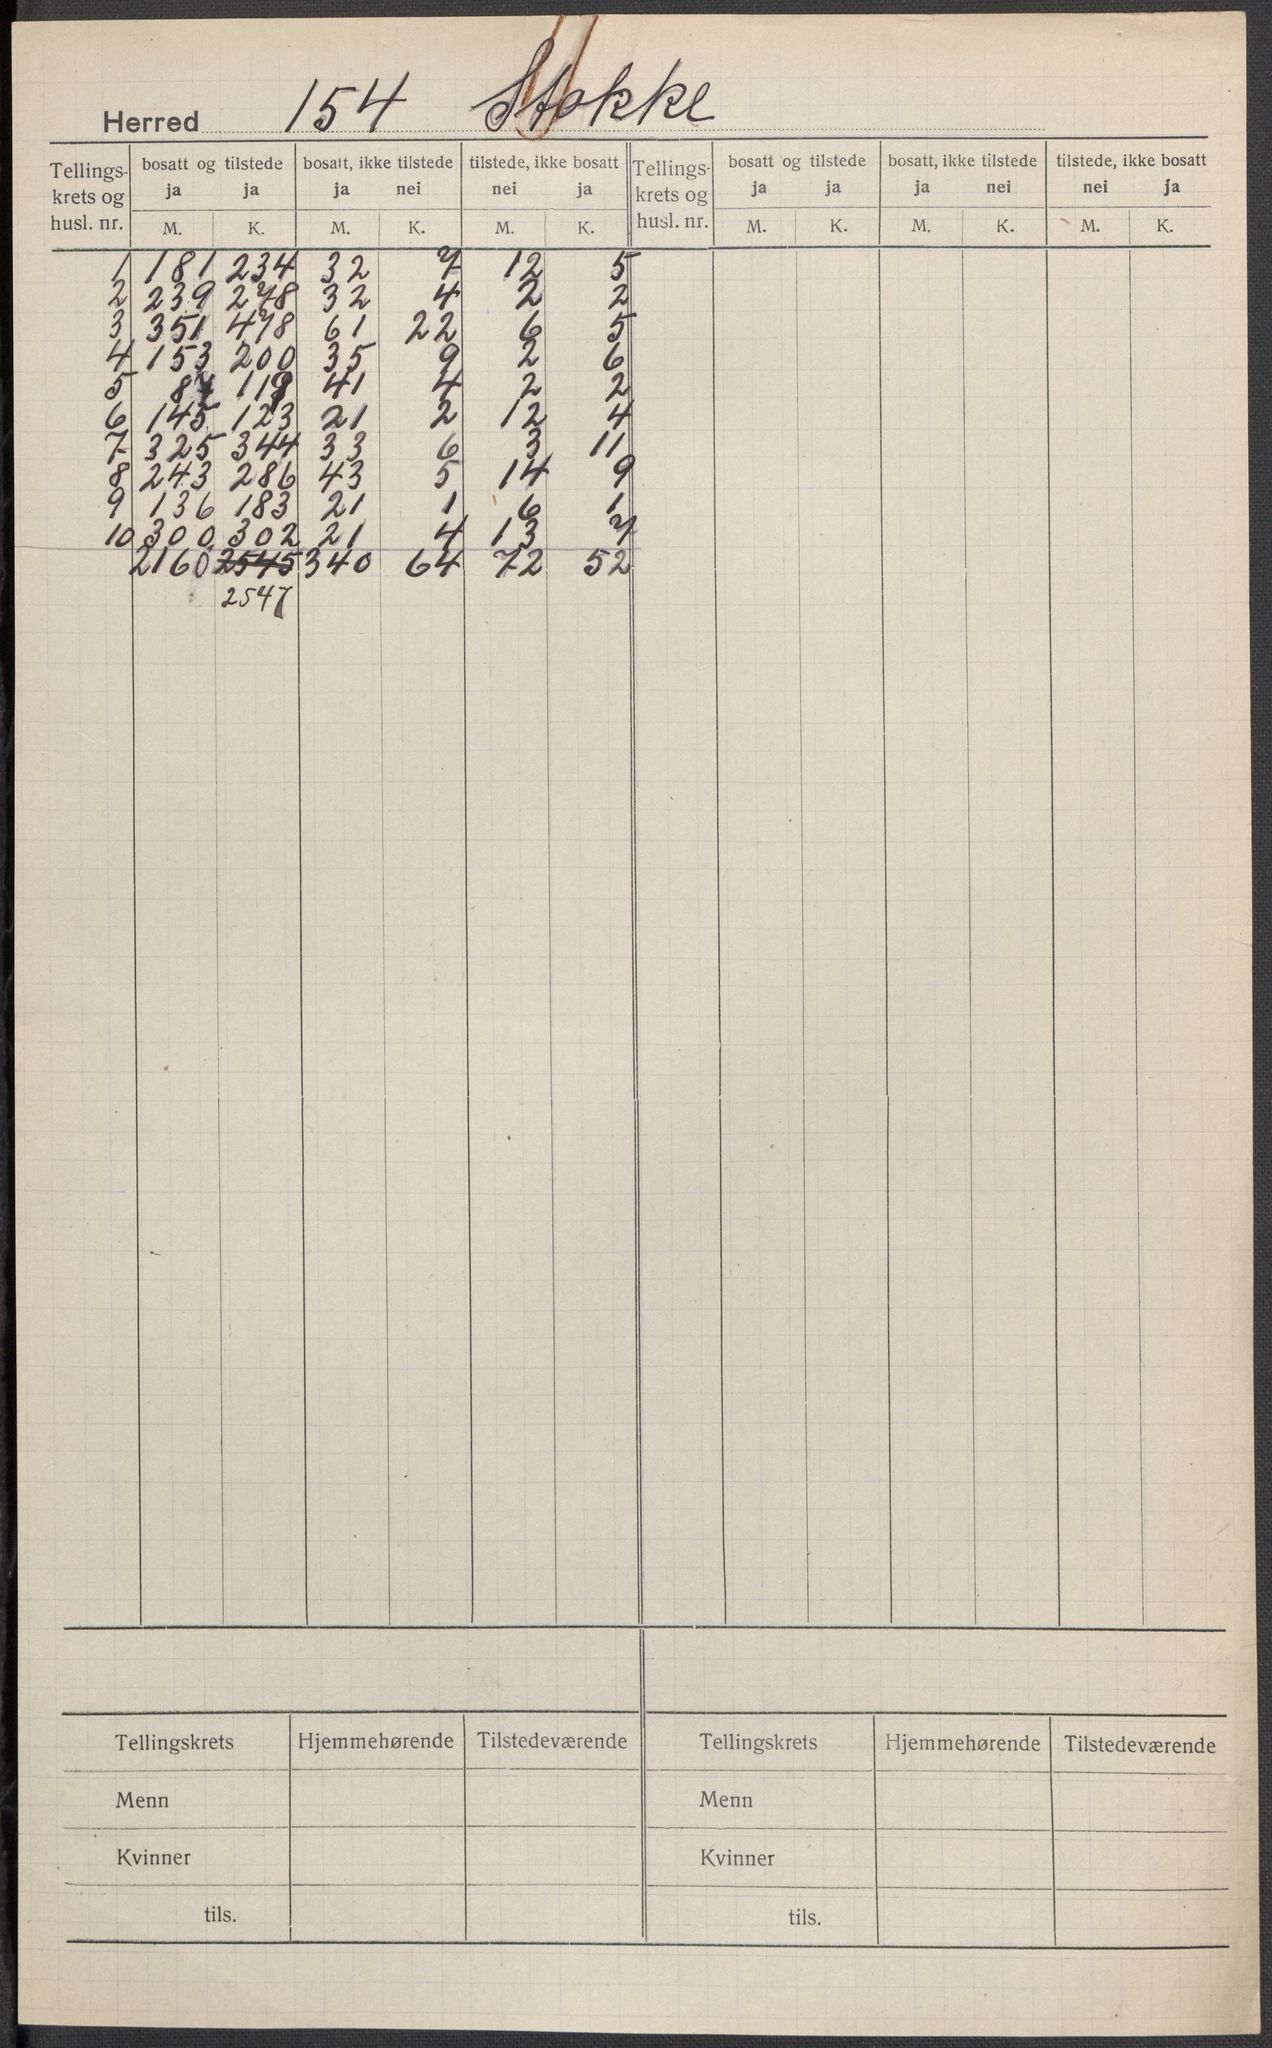 Herred 154 Stokke
Tellings- bosatt og tilstede bosatt, ikke tilstede tilstede, ikke bosatt Tellings- bosatt og tilstede bosatt, ikke tilstede tilstede, ikke bosatt
krets og ja ja ja nei nei ja krets og ja ja ja nei nei ja
husl. nr. M. K. M. K. M. K. husl. nr. M. K. M. K. M. K.
1 181 234 32 7 12 5
2 239 278 32 4 2 2
3 351 478 61 22 6 5
4 153 200 35 9 2 6
5 87 119 41 4 2 2
6 145 123 21 2 12 4
7 325 344 33 6 3 11
8 243 286 43 5 14 9
9 136 183 21 1 6 1
10 300 302 21 4 13 7
2160 2545 340 64 72 52
2547
Tellingskrets Hjemmehørende Tilstedeværende Tellingskrets Hjemmehørende Tilstedeværende
Menn Menn
Kvinner Kvinner
tils. tils.